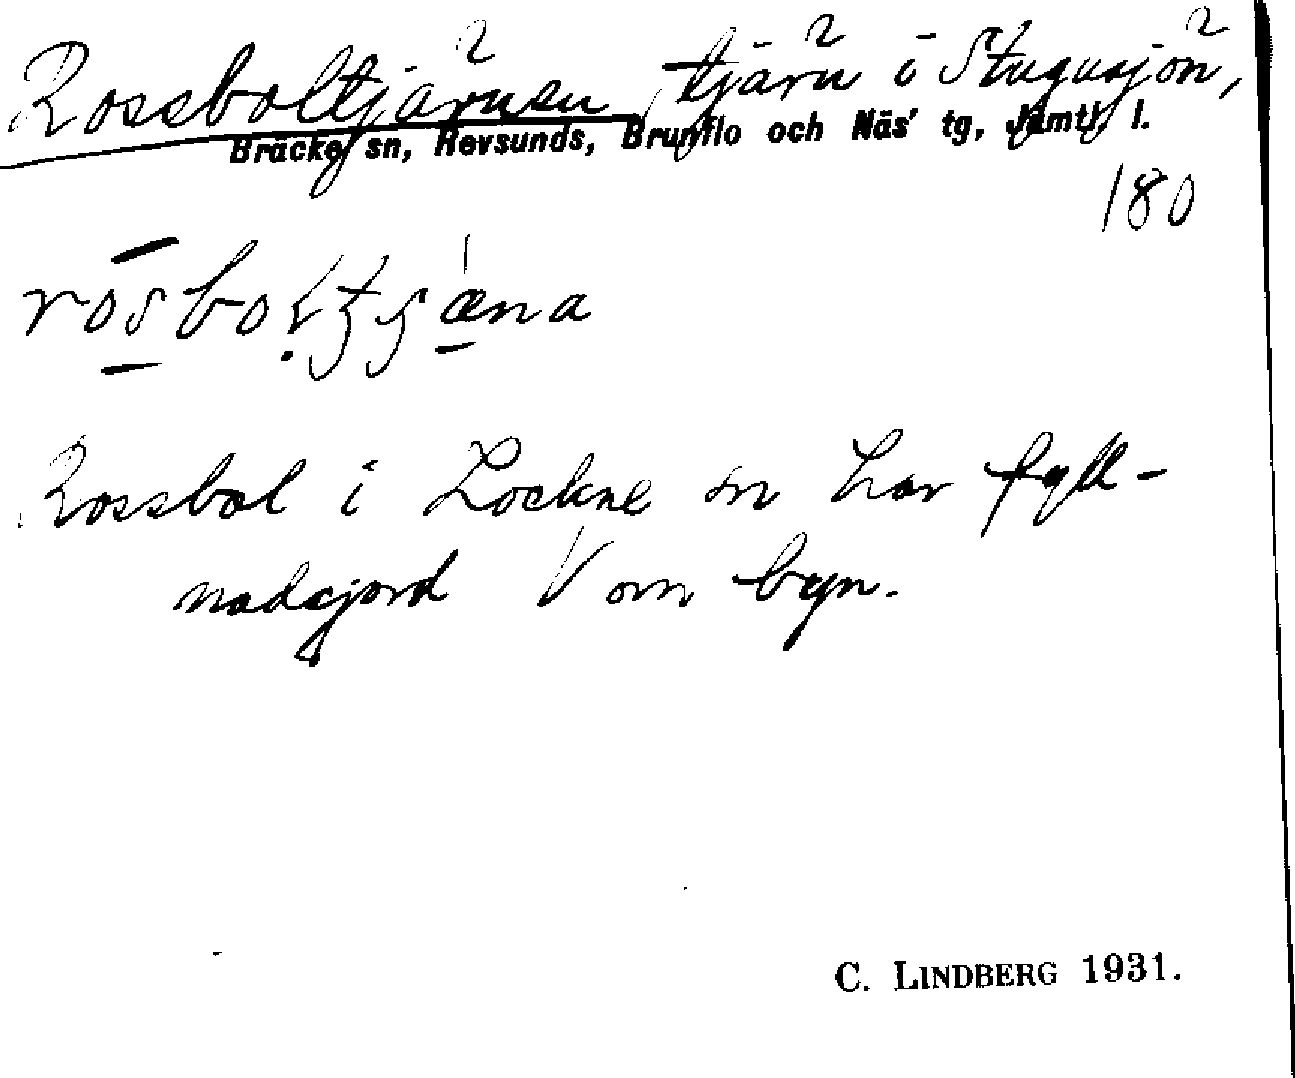 Rossboltjärnen, tjärn i Stugusjön,
Bräcke sn, Revsunds, Brunflo och Näs' tg, Jämtl. l.
180
Rossbol i Lockne sn har fyll-
nadsjord V om byn.
C. LINDBERG 1931.